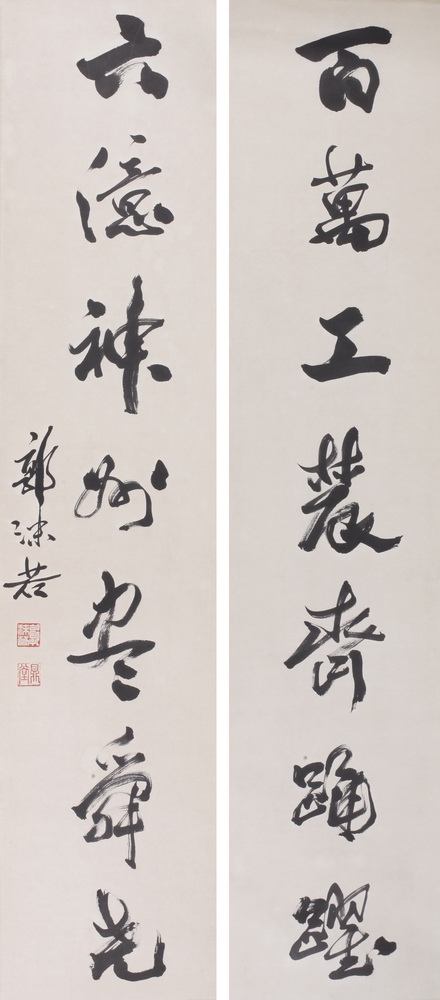 百萬工農齊踊躍
六億神州尽舜尧
郭沫若